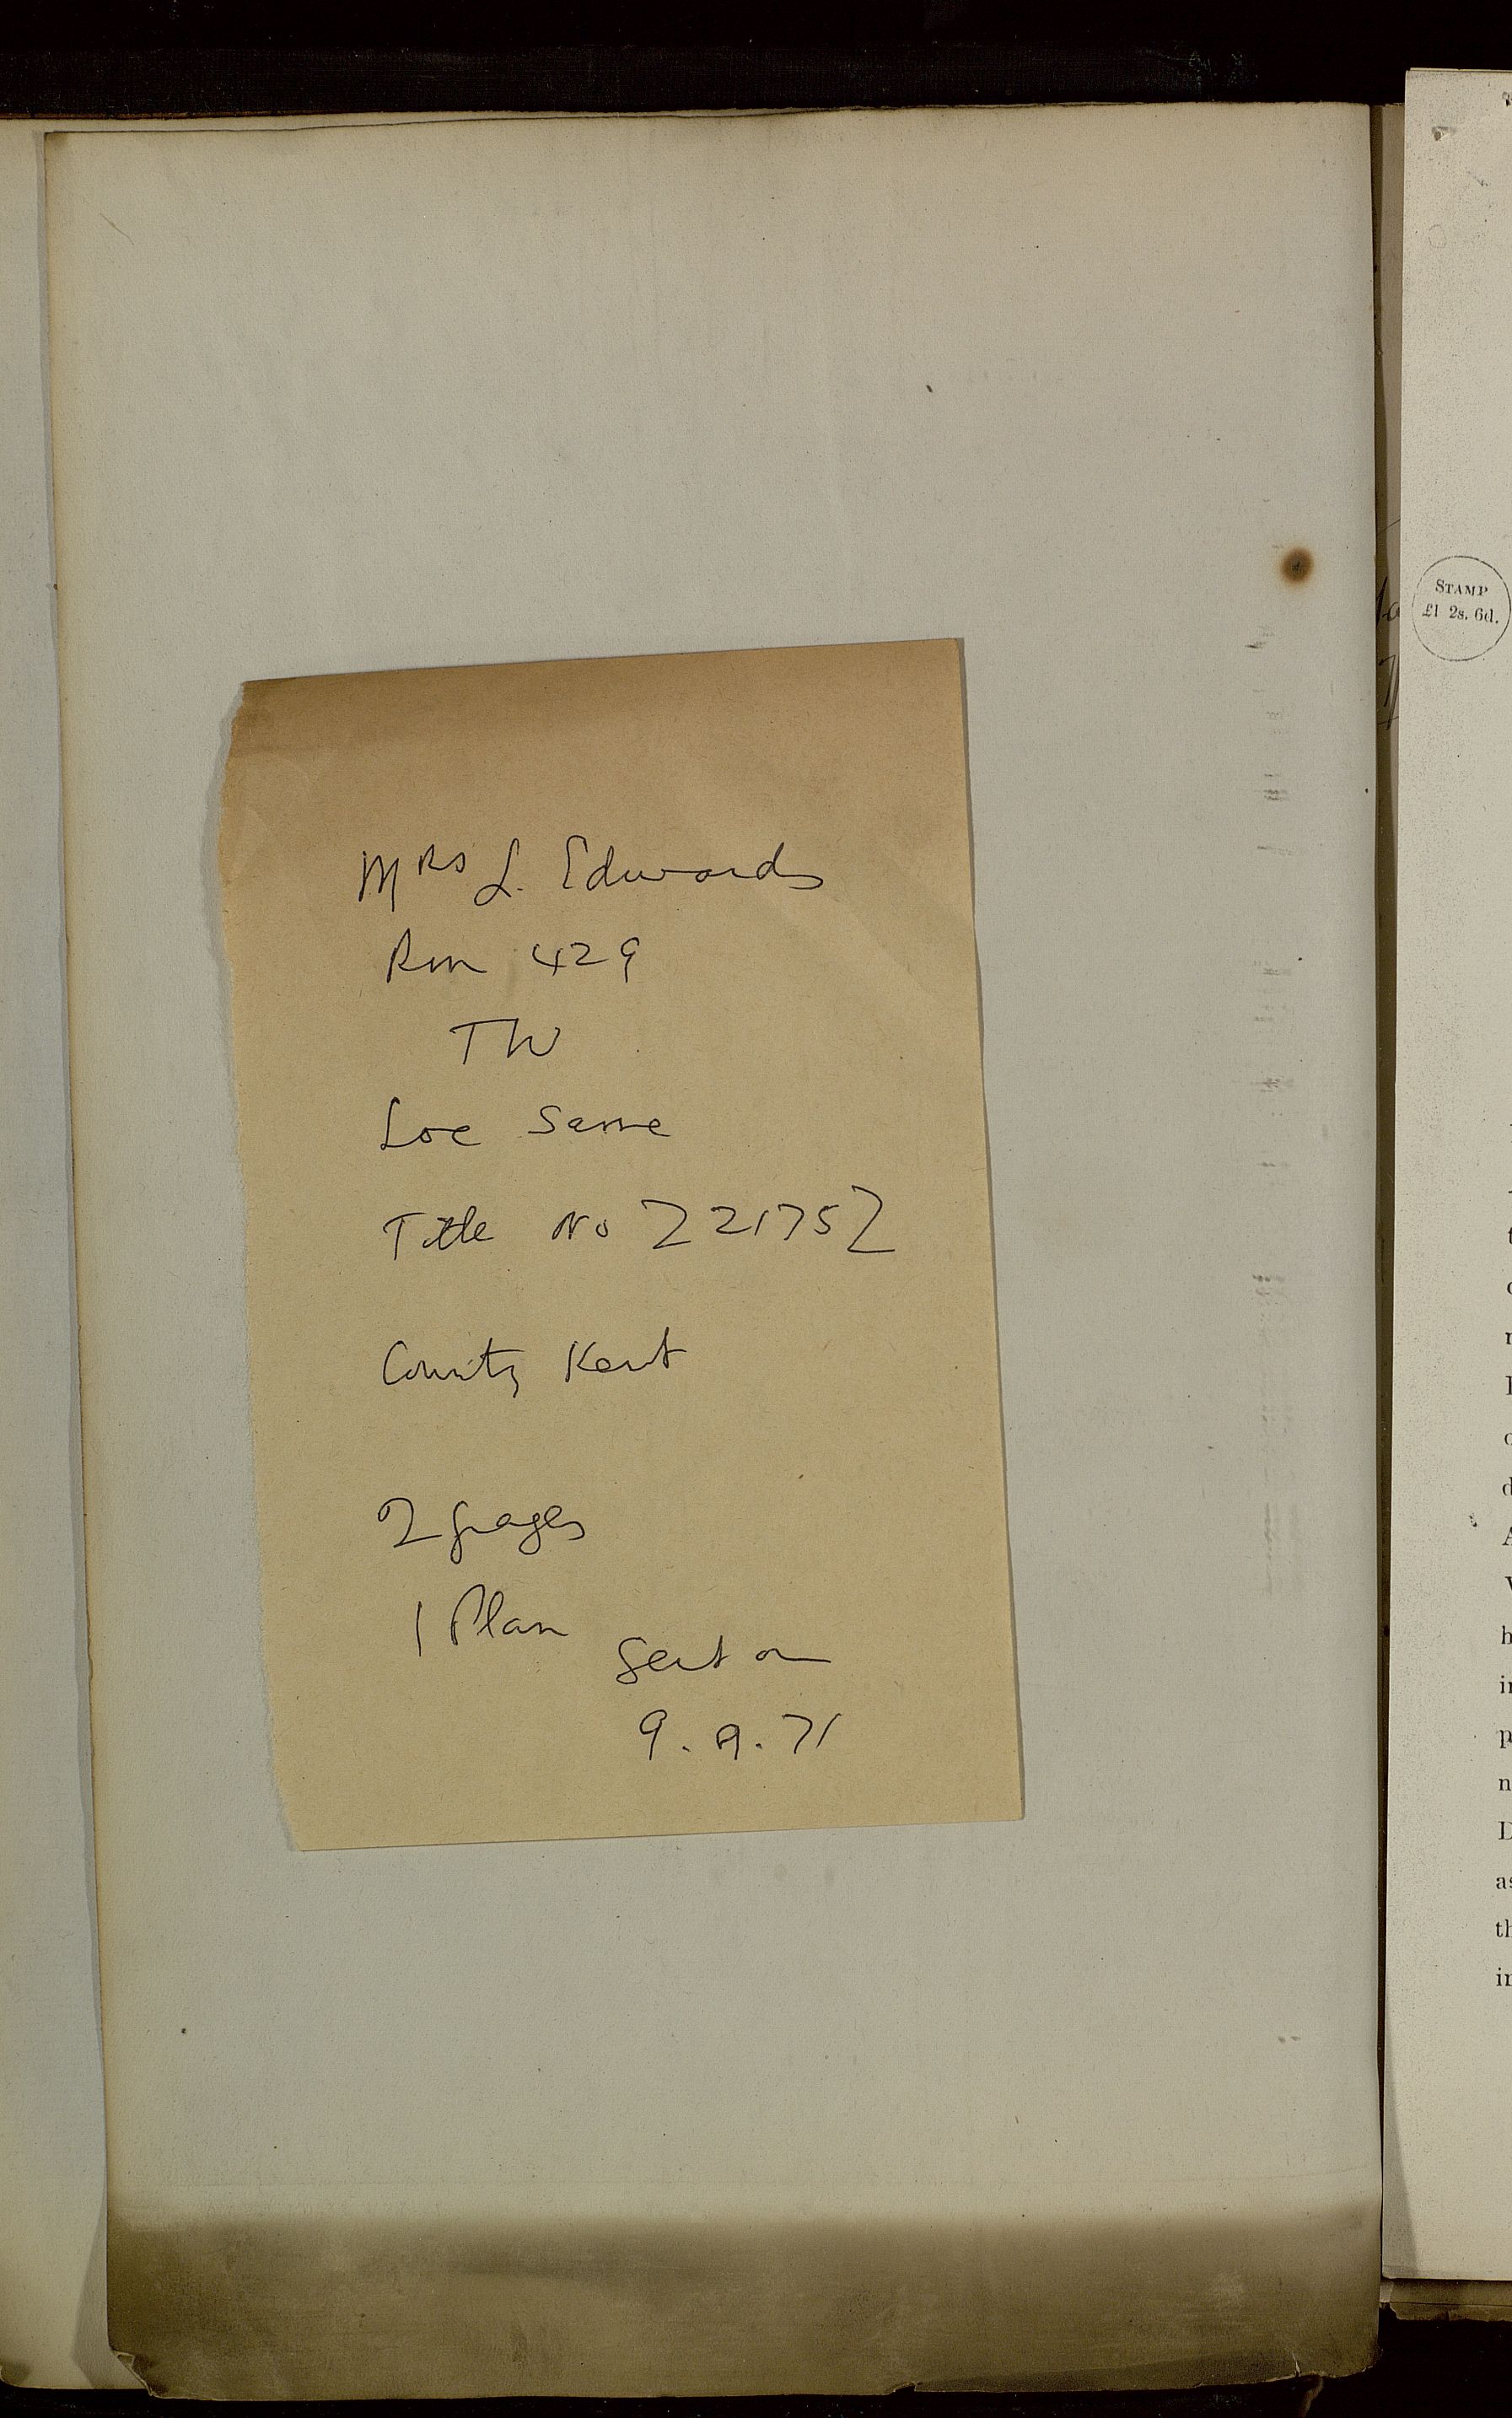 Mrs L. Edwards
Rm 429
TW
Loc Same
Title No Z2175Z
County Kent
2 pages
1 Plan
Sent on
9.9.71
STAMP
£1 2s. 6d.